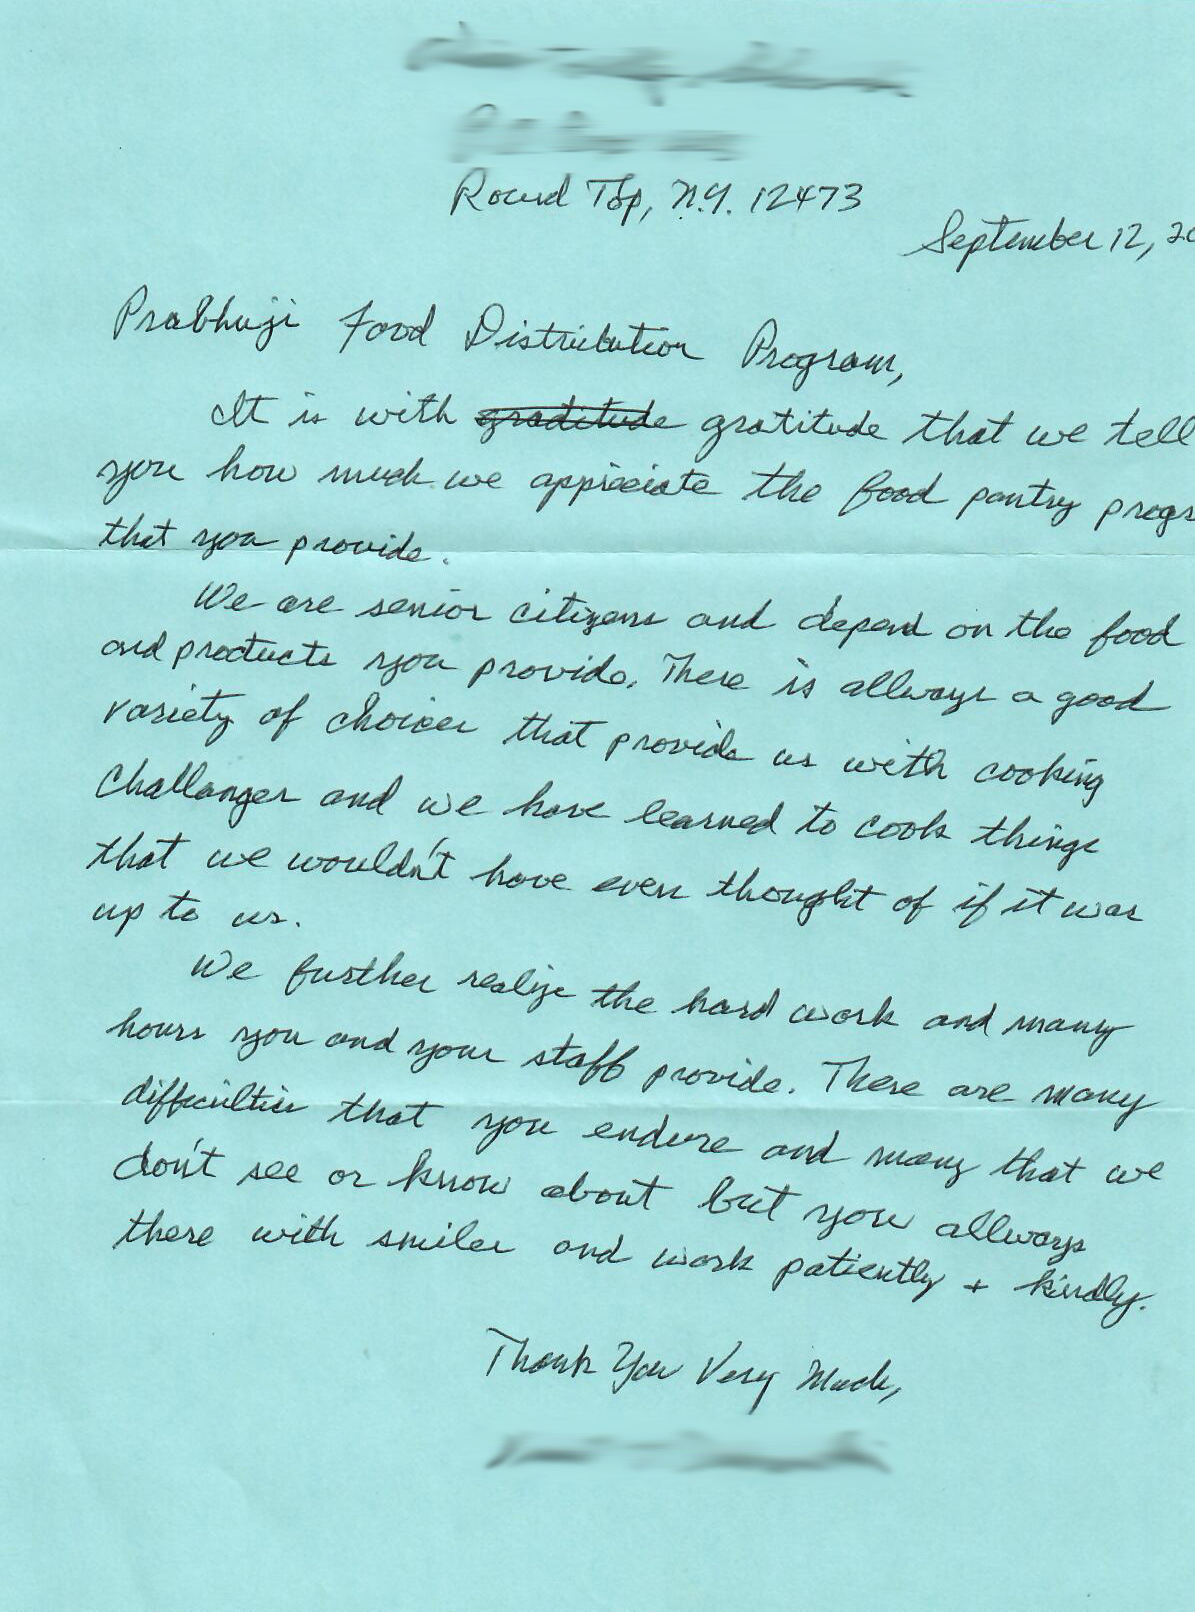 Round Top, N.Y. 12473
September 12, 20
Prabhuji Food Distribution Program,
It is with graditude gratitude that we tell
you how much we appreciate the food pantry progr
that you provide.
We are senior citizens and depend on the food
and products you provide. There is allways a good
variety of choices that provide us with cooking
challanges and we have learned to cook things
that we wouldn't have even thought of if it was
up to us.
We further realize the hard work and many
hours you and your staff provide. There are many
difficulties that you endure and many that we
don't see or know about but you allways
there with smiles and work patiently + kindly.
Thank You Very Much,